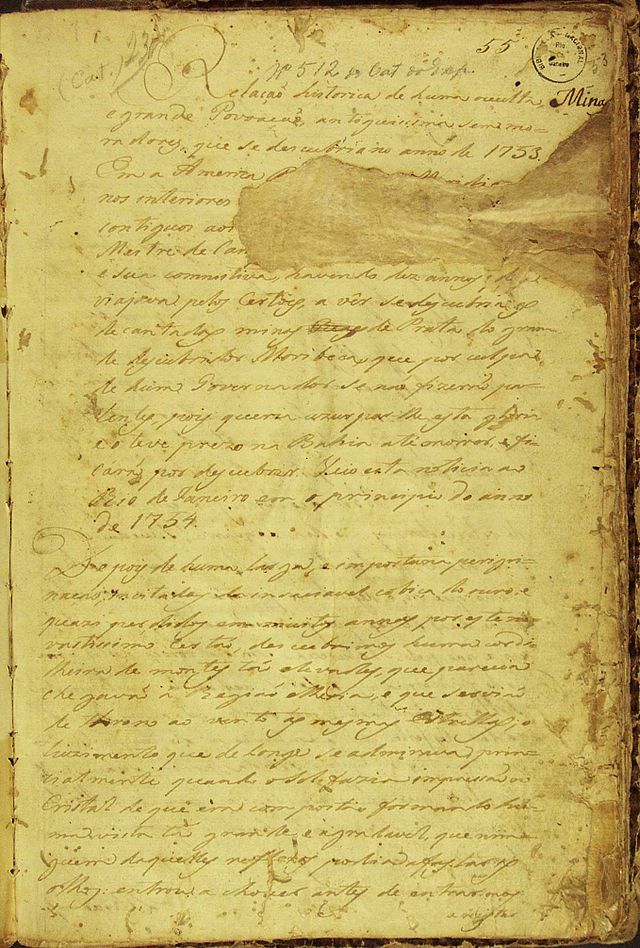 55
(Cat. 123
Nº 512 do Cat do Exp.
BIBLIOTHECA NACIONAL
Rio de Janeiro
Relação historica de huma occulta,
Mina
e grande Povoação antiquissima sem mo-
radores, que se descubriu no anno de 1753.
Em a America
nos interiores
contiguos aos
Mestre de Can
e sua commitiva, havendo dez annos, que
viajava pelos Certões, a vêr se descubria as
decantadas minas de Prata do gran-
de descubridor Moribeca, que por culpa
de hum Governador se não fizerão pa-
tentes, pois queria uzurparlhe esta gloria
e o teve prezo na Bahia até morrer, e fi-
carão por descubrir. Veio esta noticia ao
Rio de Janeiro em o principio do anno
de 1754.
Depois de huma larga, e importuna perigri-
nação, incitados da insaciavel cobiça do ouro, e
quazi perdidos em muitos annos por este
vastissimo Certão, descubrimos huma cordi-
lheira de montes tão elevados, que parecia
chegavão á Região etheria, e que servião
de throno ao vento, ás mesmas Estrellas; o
luzimento que de longe se admirava, prin-
cipalmente quando o Sol fazia impressão ao
Cristal de que era composta, formando hu-
ma vista tão grande, e agradavel, que nin-
guem daquelles reflexos podia afastar os
olhos: entrou a chover antes de entrarmos